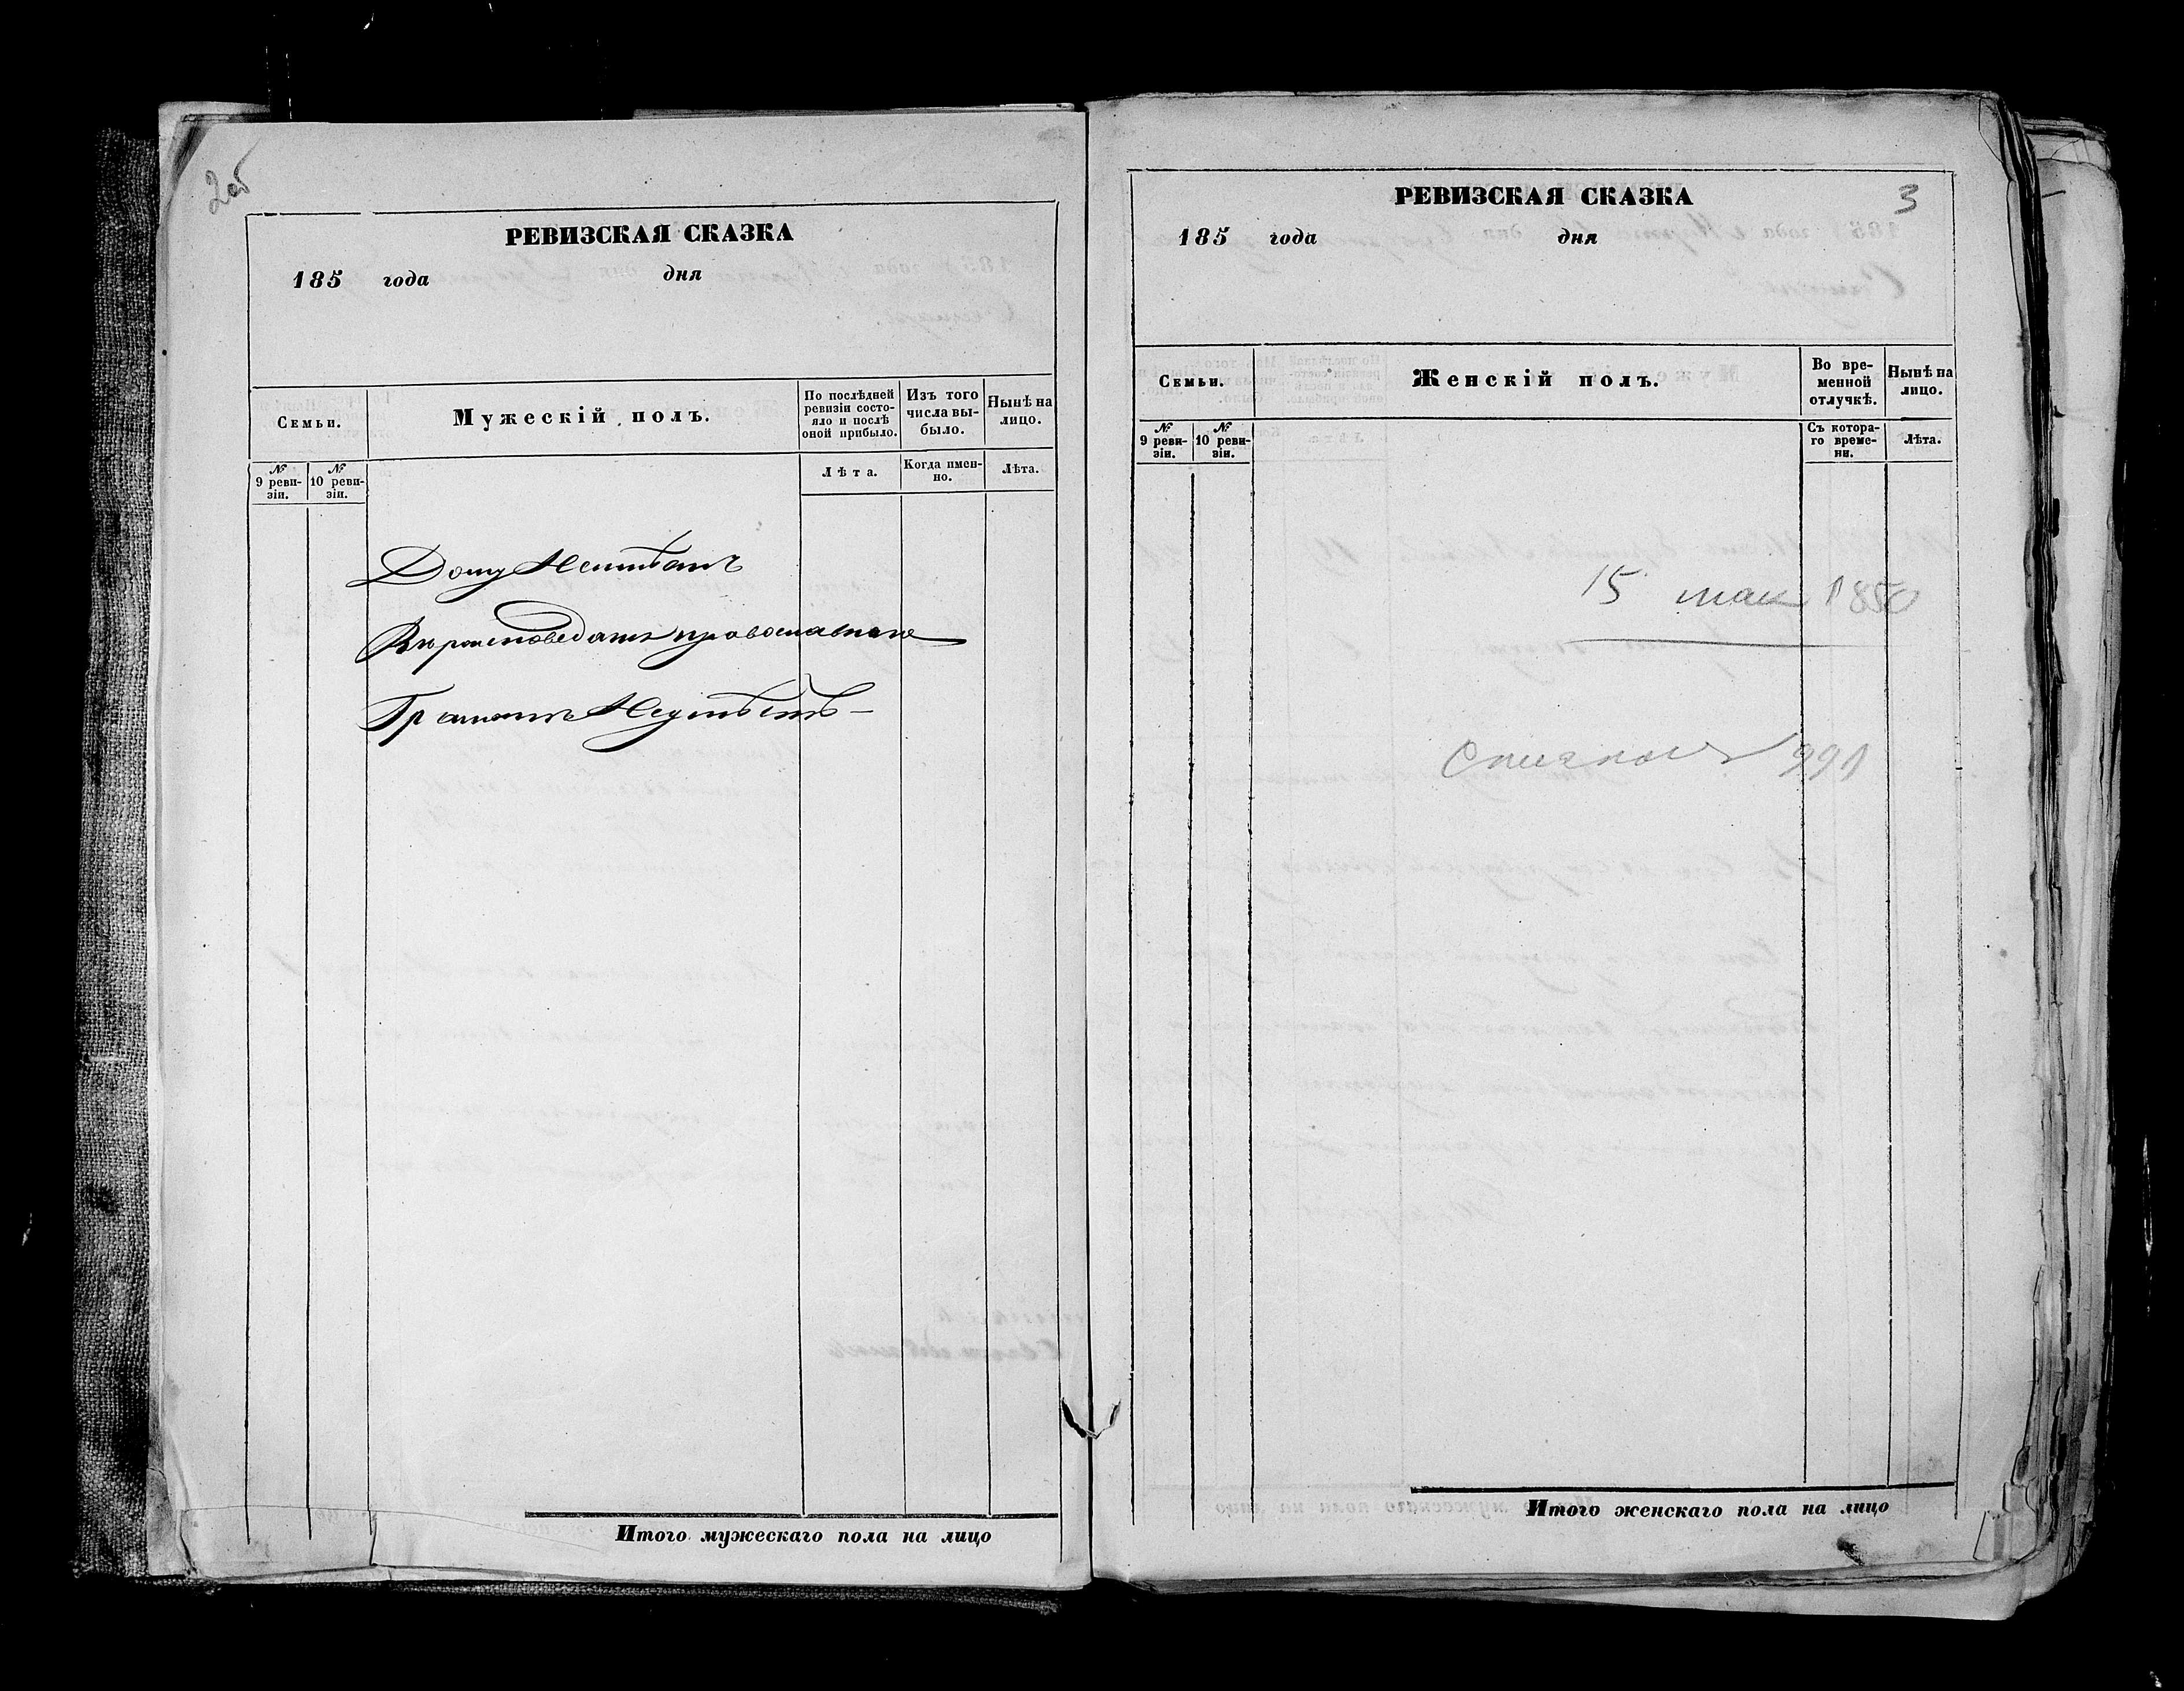 2об
РЕВИЗСКАЯ СКАЗКА
185 года дня
Семьи.
Мужескій полъ.
По послѣдней
ревизіи состо-
яло и послѣ
оной прибыло.
Изъ того
числа вы-
было.
Нынѣ на
лицо.
№
9 реви-
зіи.
№
10 реви-
зіи.
Лѣта.
Когда имен-
но.
Лѣта.
Дому Неимѣетъ
Вѣроисповеданія православнаго
Грамотѣ Неумѣетъ –
Итого мужескаго пола на лицо
3
РЕВИЗСКАЯ СКАЗКА
185 года дня
Семьи.
Женскій полъ.
Во вре-
менной
отлучкѣ.
Нынѣ на
лицо.
№
9 реви-
зіи.
№
10 реви-
зіи.
Съ котора-
го време-
ни.
Лѣта.
15 мая 1850
991
Итого женскаго пола на лицо